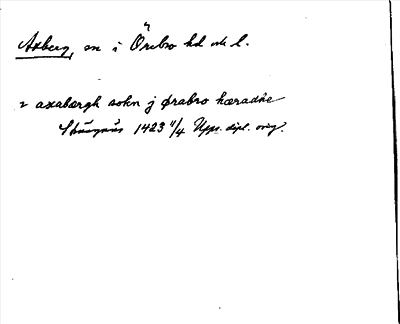 Axberg, sn i Örebro hd o l.
2 axabærgh sokn j ørabro hæradhe
Strängnäs 1423 11/4 Upps. dipl. orig.